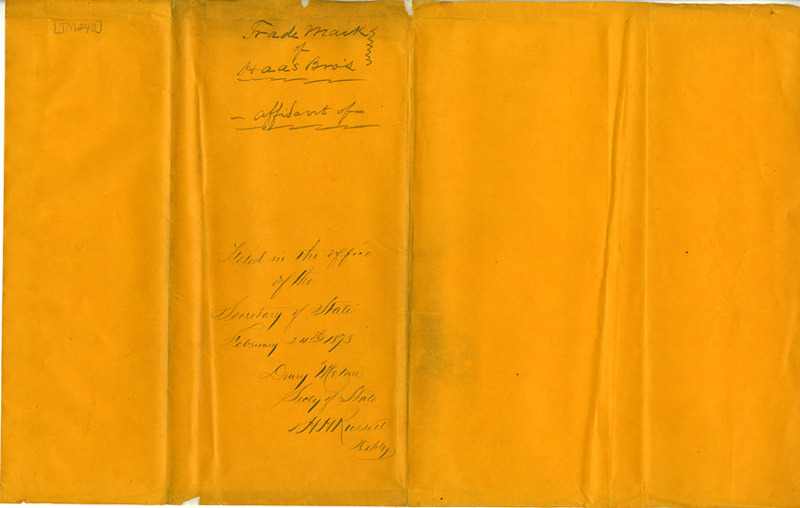 [TM240]
Trade Mark
of
Haas Bro's
— Affidavit of —
Filed in the office
of the
Secretary of State
February 24th 1873
Drury Melone
Secty of State
H H Russell